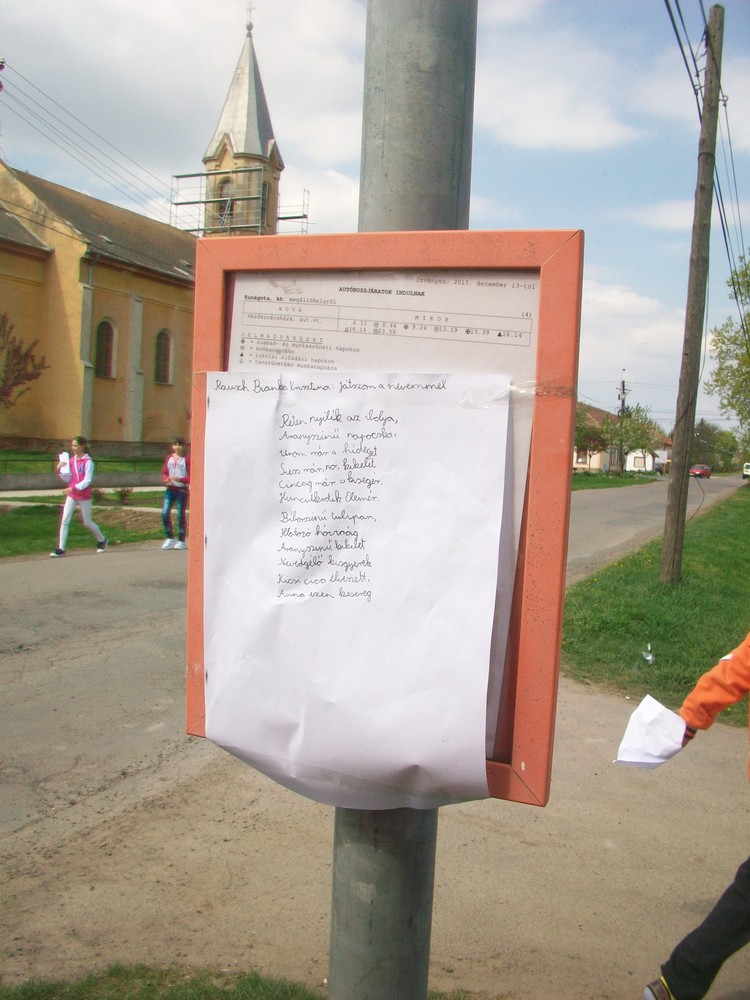 Érvényes: 2015. december 13-tól
AUTÓBUSZJÁRATOK INDULNAK
Kunágota, kh. megállóhelyről (4)
HOVÁ MIKOR
Mezőkovácsháza, aut.vt. 6.33 8.44 9.24 12.19 15.39 16.14
16.14 23.08
JELMAGYARÁZAT
= szabad- és munkaszüneti napokon
= munkanapokon
= iskolai előadási napokon
= tanszünetben munkanapokon
Rausch Bianka Krisztina: Játszom a nevemmel
Réten nyílik az ibolya,
Aranyszínű napocska.
Unom már a hideget
Siess már, no, kikelet
Cincog már a kisegér,
Huncutkodik Elemér.
Bíborszínű tulipán,
Illatozó hóvirág
Aranyszínű kikelet
Nevedgélő kisgyerek
Kicsi cica elveszett,
Anna ezen kesereg